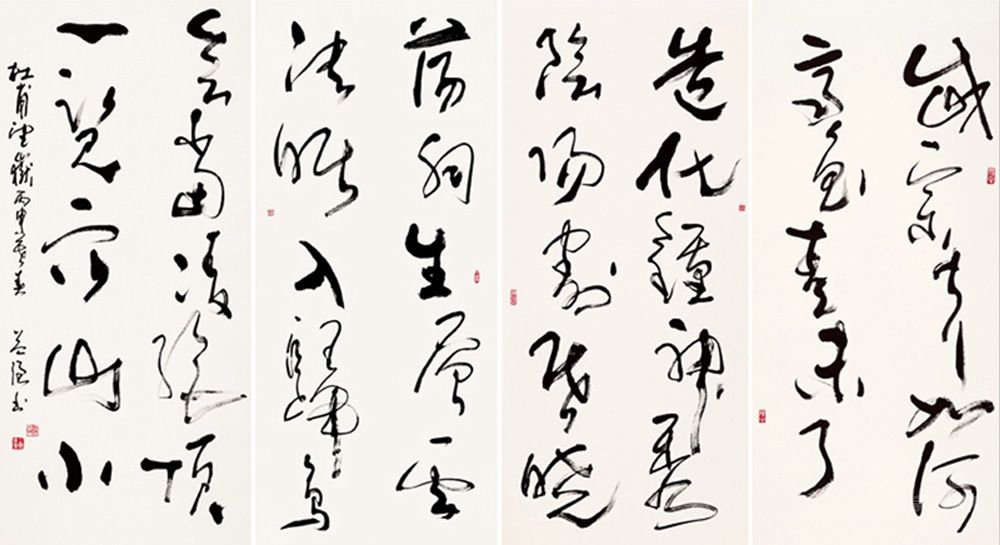 岱宗夫如何
齊魯青未了
造化鍾神秀
陰陽割昏曉
蕩胸生層雲
決眥入歸鳥
會當凌絕頂
一覽眾山小
杜甫望嶽丙申暮春 書